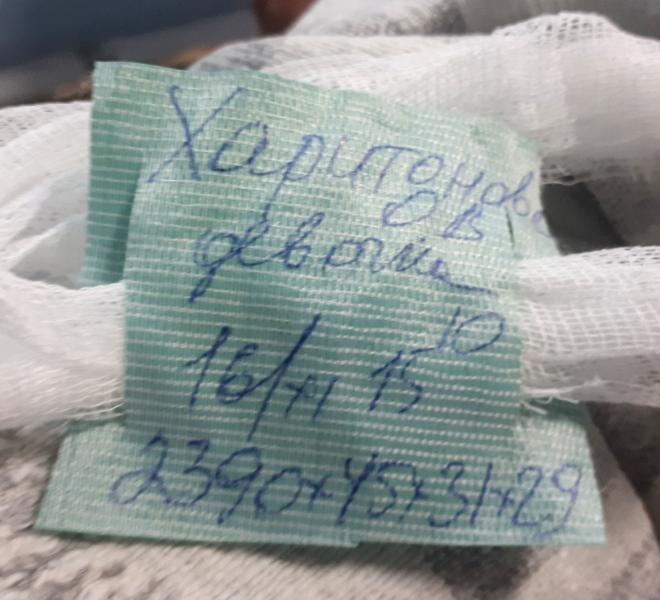 Харитонова
ОВ
девочка
16/XI 15 10
2390×45×31×29